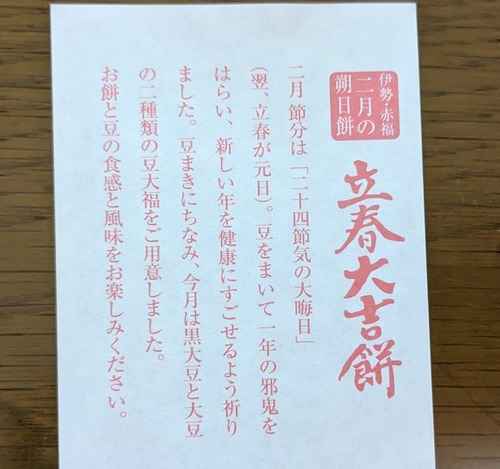 伊勢・赤福
二月の
朔日餅
立春大吉餅
二月 節分は「二十四節気の大晦日」
(翌、立春が元日)。豆をまいて一年の邪鬼を
はらい、新しい年を健康にすごせるよう祈り
ました。豆まきにちなみ、今月は黒大豆と大豆
の二種類の豆大福をご用意しました。
お餅と豆の食感と風味をお楽しみください。